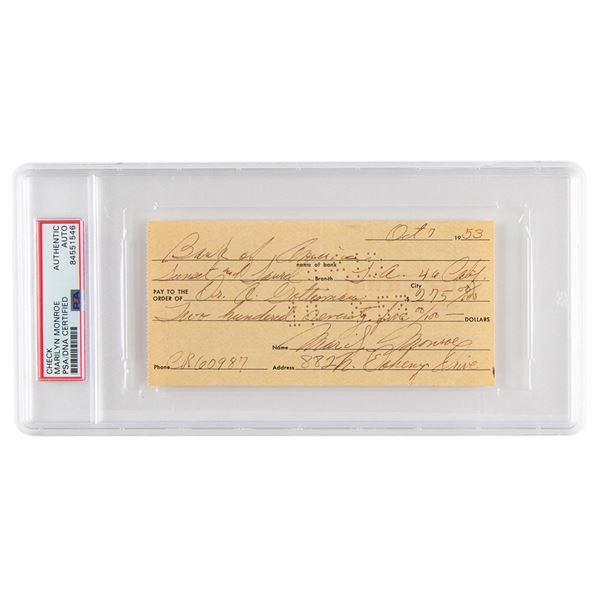 CHECK AUTHENTIC
MARILYN MONROE AUTO
PSA/DNA CERTIFIED 84551546
PSA
Oct 7 1953
Bank of America
name of bank
Sunset and Laurel Branch L.A. 46 Calif
City
PAY TO THE
ORDER OF Dr. A. Gottesman 275 00/00
Two hundred seventy five 00/00 DOLLARS
Name Marilyn Monroe
Phone CR60987 Address 882 N. Doheny Drive